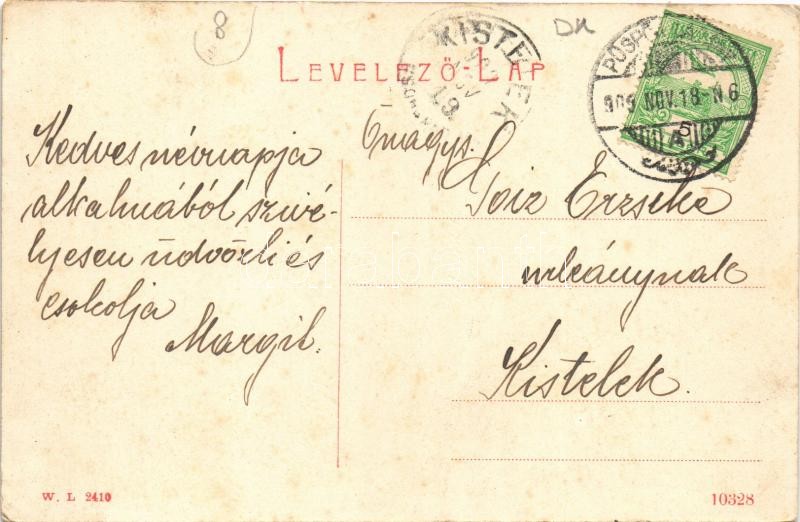 8
DK
LEVELEZŐ-LAP
KISTELEK
909 NOV. 18. N. 6
5
Kedves névnapja
alkalmából szivé-
lyesen üdvözli és
csokolja
Margit.
Önagys.
Erzsike
urleánynak
Kistelek.
W. L 2410
10328